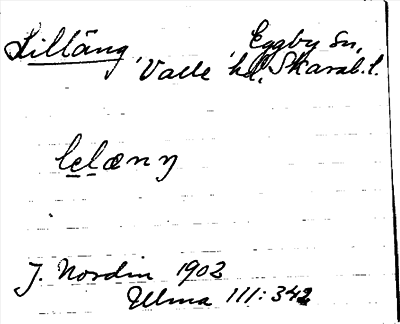 Lilläng, Eggby sn,
Valle hd, Skarab. l.
lelæny
J. Nordin 1902
Ulma 111:342